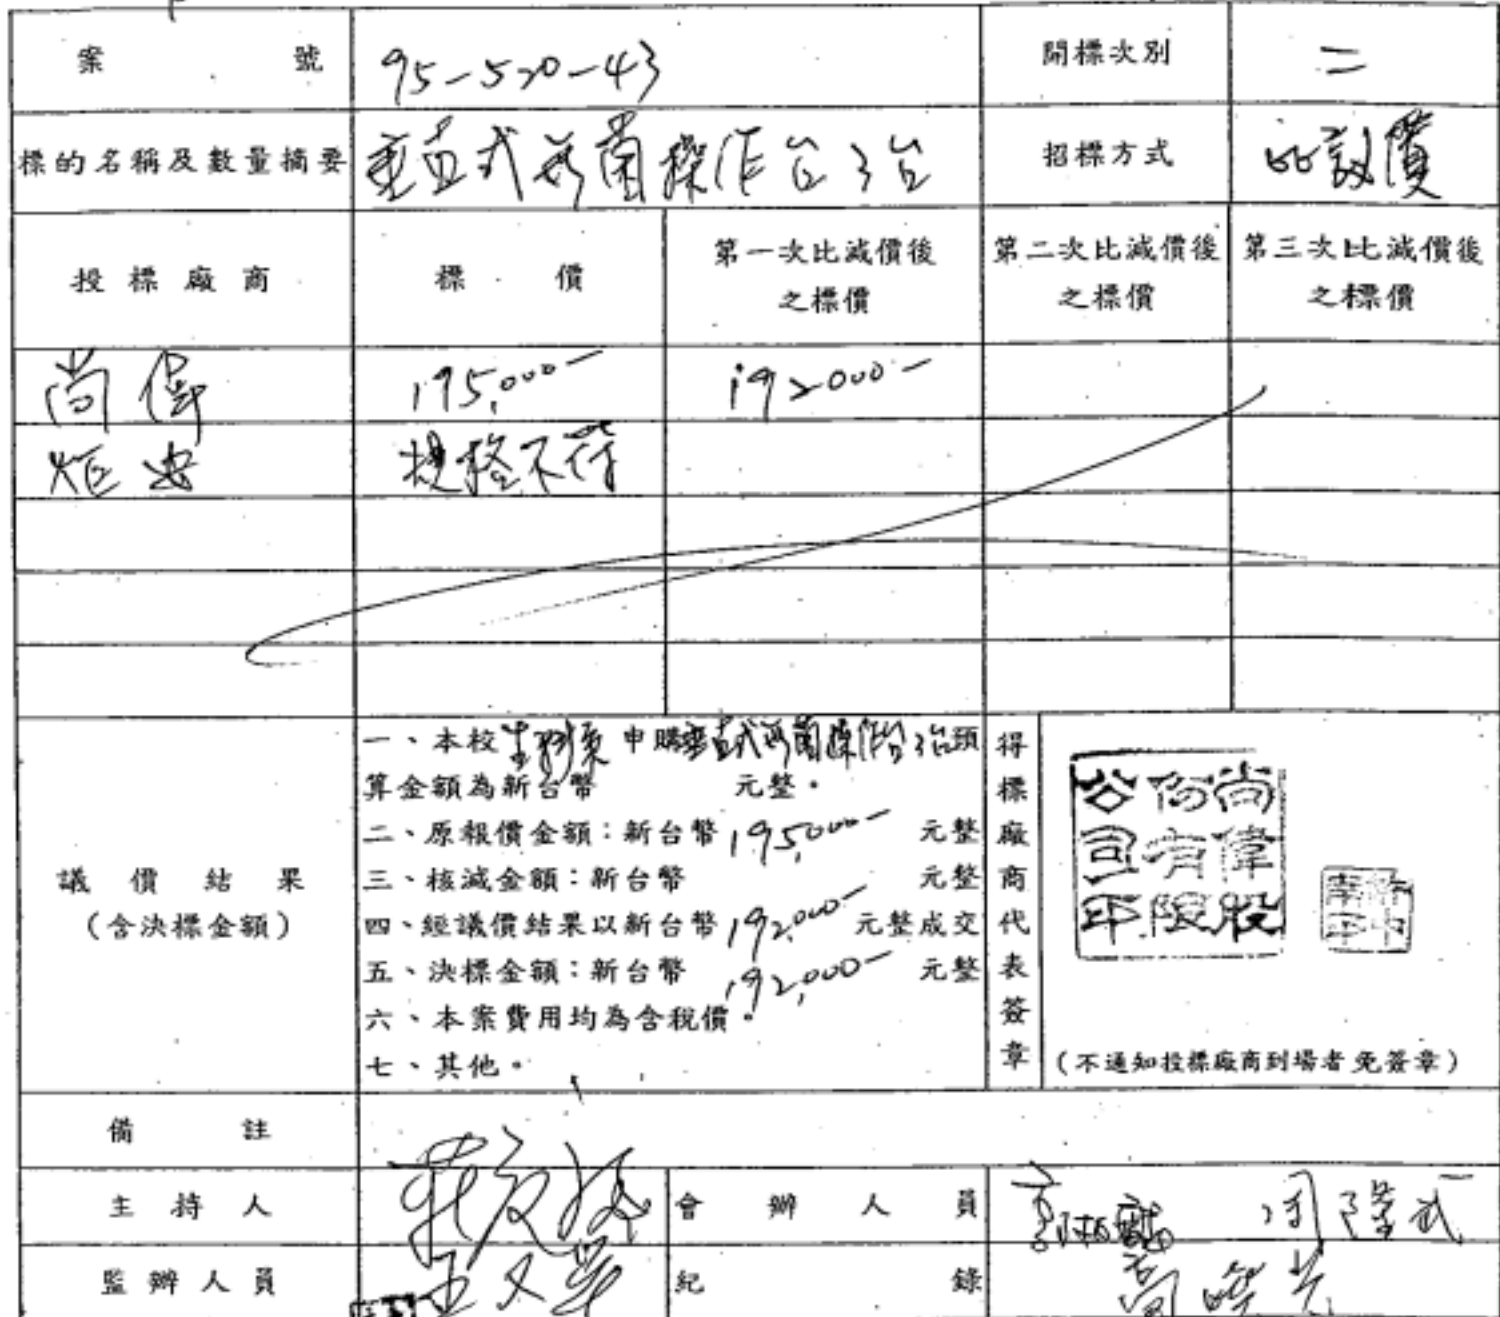 案號 95-520-43 開標次別 二
標的名稱及數量摘要 垂直式無菌操作台3台 招標方式 比議價
投標廠商 標價 第一次比減價後之標價 第二次比減價後之標價 第三次比減價後之標價
尚偉 195,000- 192000-
炬安 規格不符
議價結果
(含決標金額)
一、本校 申購垂直式無菌操作台3台預
算金額為新台幣 元整。
二、原報價金額：新台幣 195,000- 元整
三、核減金額：新台幣 元整
四、經議價結果以新台幣 192,000- 元整成交
五、決標金額：新台幣 192,000- 元整
六、本案費用均為含稅價。
七、其他。
得標廠商代表簽章
尚偉股
份有限
公司印
(不通知投標廠商到場者免簽章)
備註
主持人 會辦人員
監辦人員 紀錄